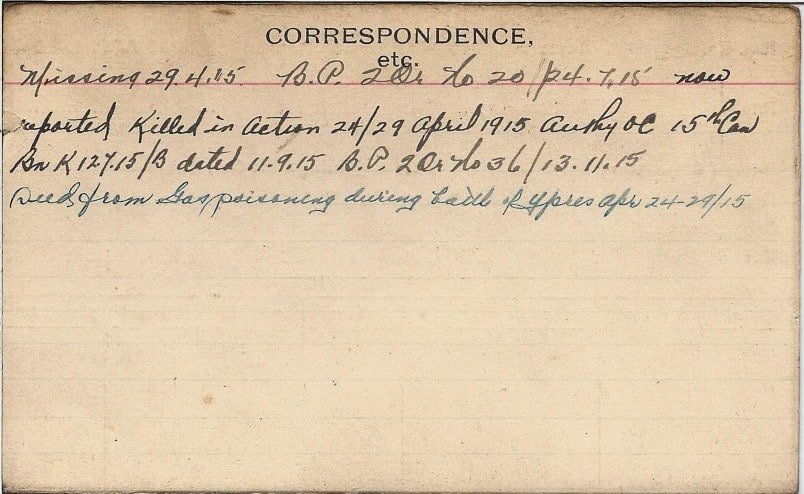 CORRESPONDENCE,
etc.
Missing 29.4.15 B.P. 2 Or No 20 // 24.7.15 now
reported Killed in Action 24/29 April 1915 Authy OC 15th Can
Bn K 127.15/B dated 11.9.15 B.P. 2 Or No 36/13.11.15
Died from Gas poisoning during battle of Ypres Apr 24-29/15